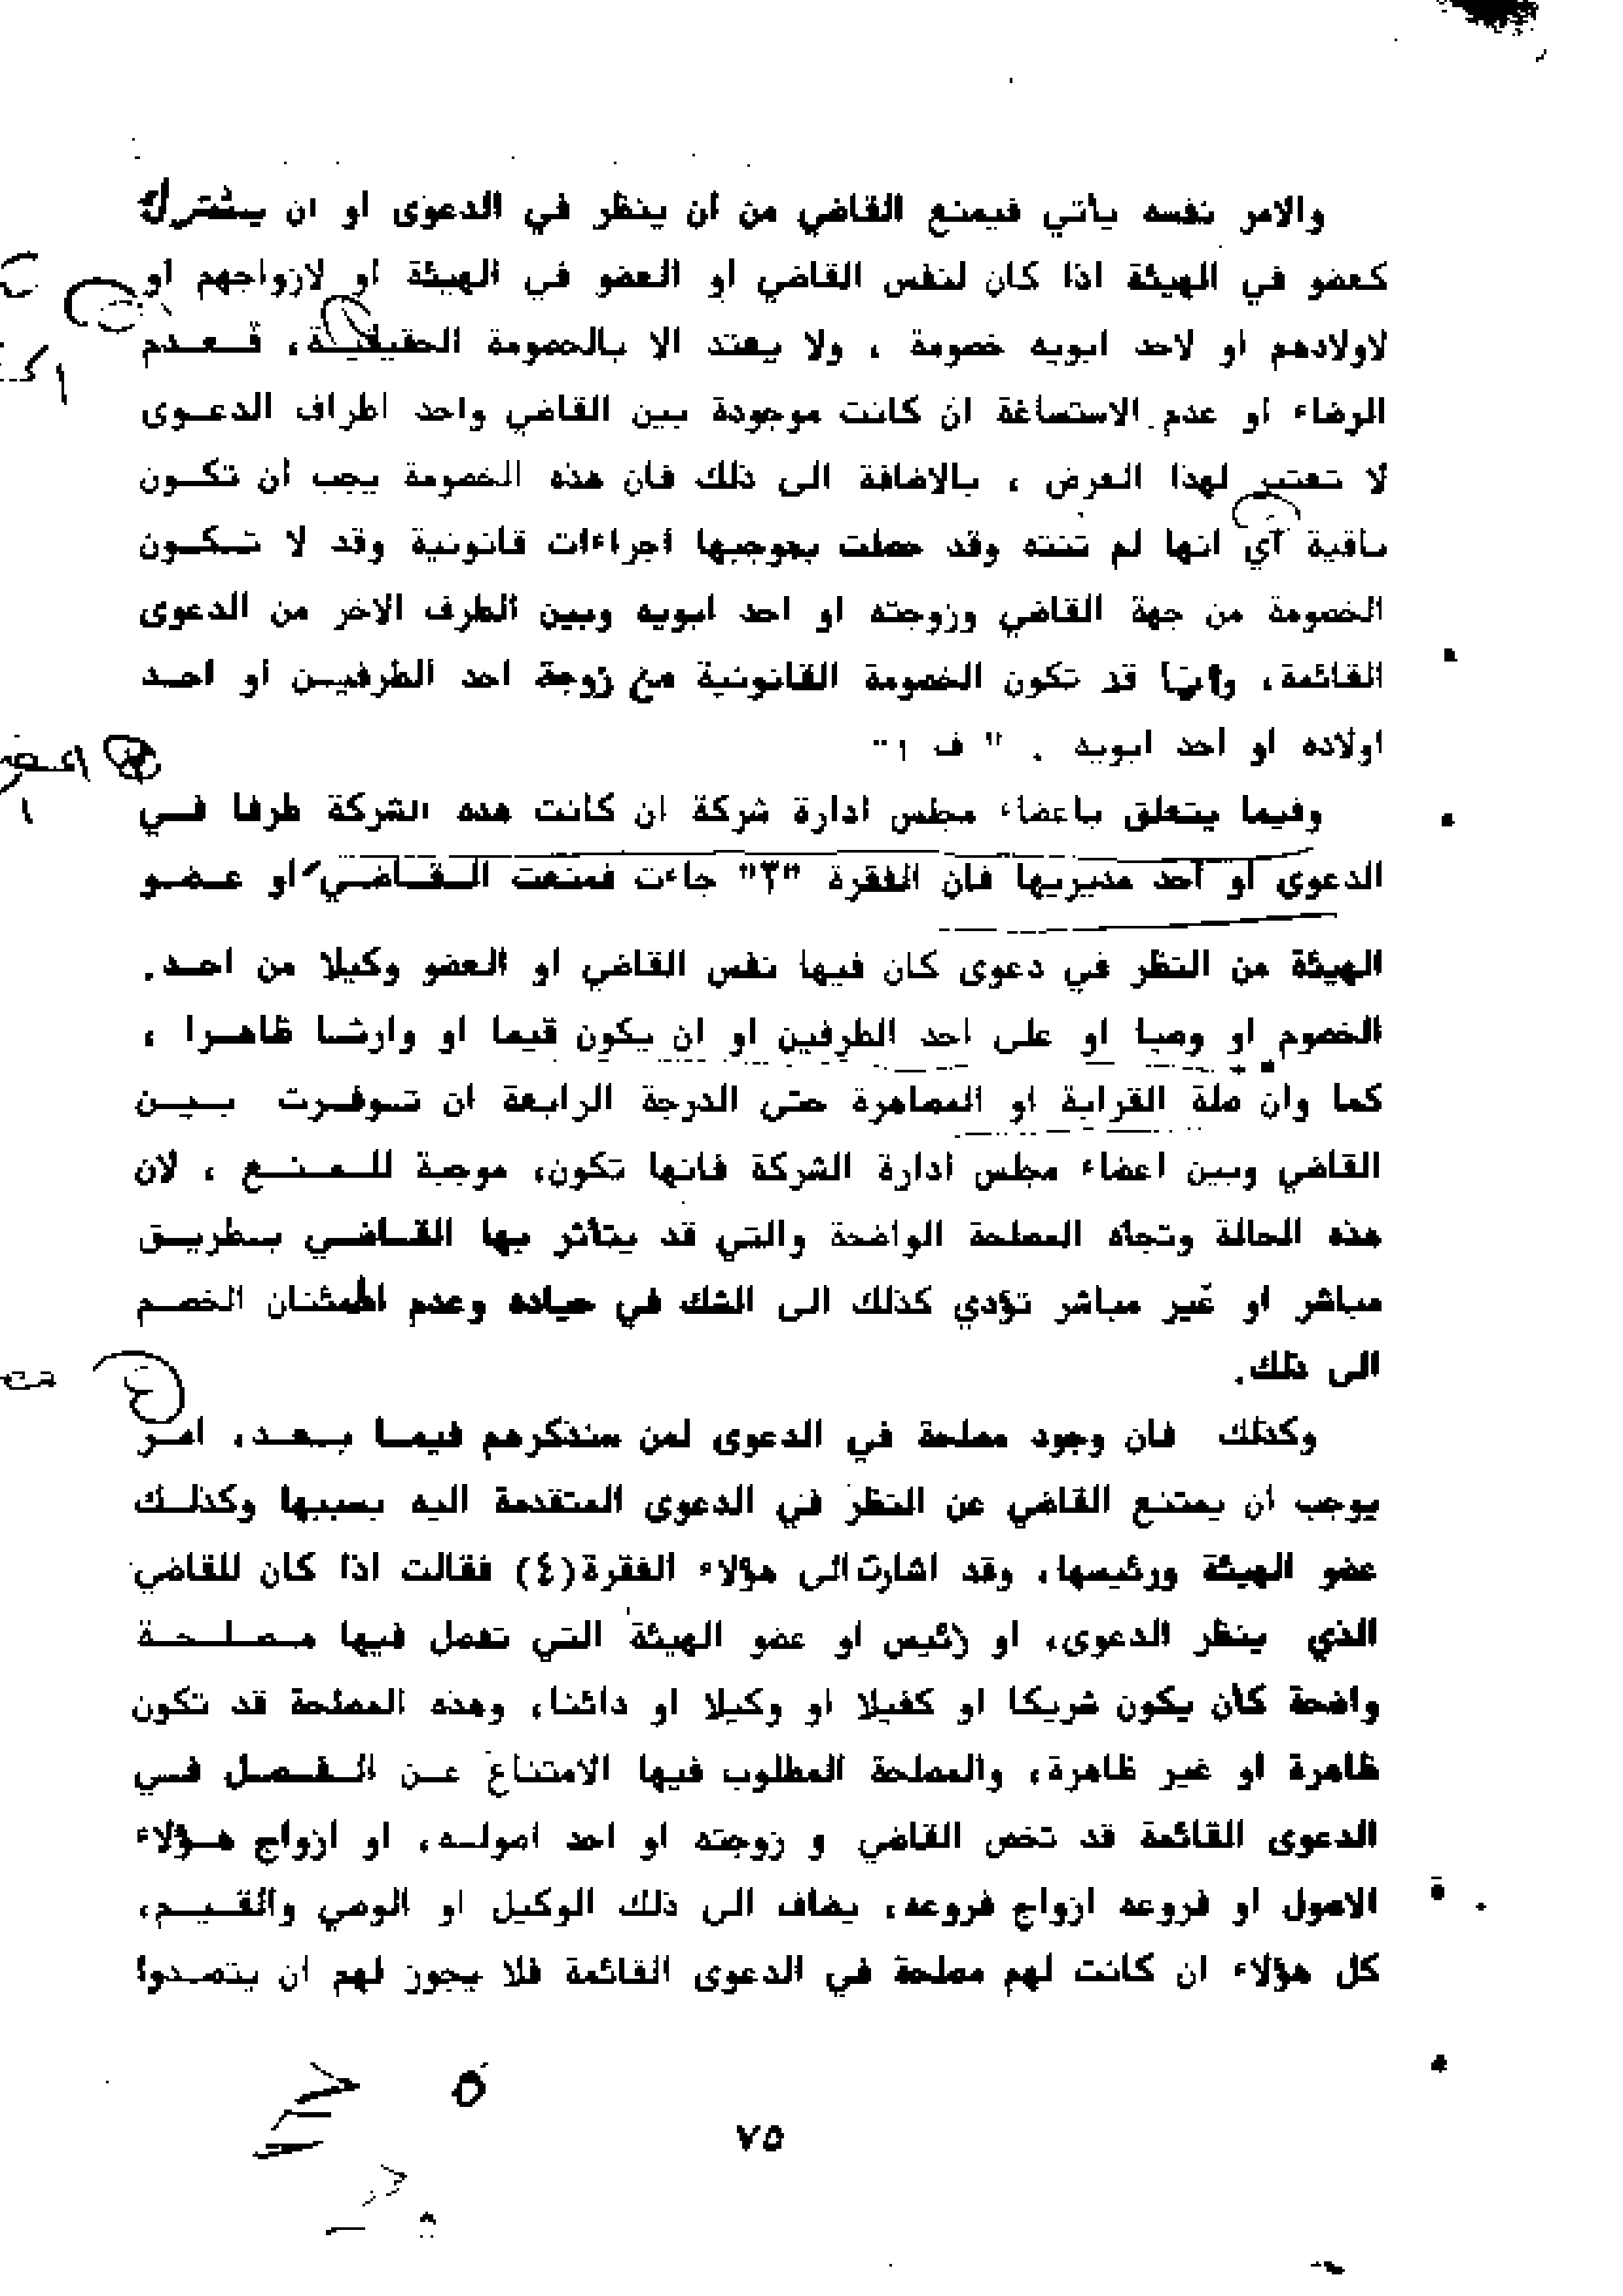 والامر نفسه ياتي فيمنع القاضي من ان ينظر في الدعوى او ان يشترك
كعضو في الهيئة اذا كان لنفس القاضي او العضو في الهيئة او لازواجهم او
لاولادهم او لاحد ابويه خصومة ، ولا يعتد الا بالخصومة الحقيقية، فعدم
الرضاء او عدم الاستساغة ان كانت موجودة بين القاضي واحد اطراف الدعوى
لا تعتبر لهذا الغرض ، بالاضافة الى ذلك فان هذه الخصومة يجب ان تكون
باقية أي انها لم تنته وقد حصلت بموجبها اجراءات قانونية وقد لا تكون
الخصومة من جهة القاضي وزوجته او احد ابويه وبين الطرف الاخر من الدعوى
القائمة، وانما قد تكون الخصومة القانونية مع زوجة احد الطرفين او احد
اولاده او احد ابويه . " ف ١"
وفيما يتعلق باعضاء مجلس ادارة شركة ان كانت هذه الشركة طرفا في
الدعوى او أحد مديريها فان الفقرة "٣" جاءت فمنعت القاضي او عضو
الهيئة من النظر في دعوى كان فيها نفس القاضي او العضو وكيلا من احد.
الخصوم او وصيا او على احد الطرفين او ان يكون قيما او وارثا ظاهرا ،
كما وان صلة القرابة او المصاهرة حتى الدرجة الرابعة ان توفرت بين
القاضي وبين اعضاء مجلس ادارة الشركة فانها تكون، موجبة للمنع ، لان
هذه الحالة وتجاه المصلحة الواضحة والتي قد يتأثر بها القاضي بطريق
مباشر او غير مباشر تؤدي كذلك الى الشك في حياده وعدم اطمئنان الخصم
الى ذلك.
وكذلك فان وجود مصلحة في الدعوى لمن سنذكرهم فيما بعد، امر
يوجب ان يمتنع القاضي عن النظر في الدعوى المتقدمة اليه بسببها وكذلك
عضو الهيئة ورئيسها، وقد اشارت الى هؤلاء الفقرة(٤) فقالت اذا كان للقاضي
الذي ينظر الدعوى، او رئيس او عضو الهيئة التي تفصل فيها مصلحة
واضحة كأن يكون شريكا او كفيلا او وكيلا او دائنا، وهذه المصلحة قد تكون
ظاهرة او غير ظاهرة، والمصلحة المطلوب فيها الامتناع عن الفصل في
الدعوى القائمة قد تخص القاضي و زوجته او احد اصوله، او ازواج هؤلاء
الاصول او فروعه ازواج فروعه، يضاف الى ذلك الوكيل او الوصي والقيم،
كل هؤلاء ان كانت لهم مصلحة في الدعوى القائمة فلا يجوز لهم ان يتصدوا
٧٥